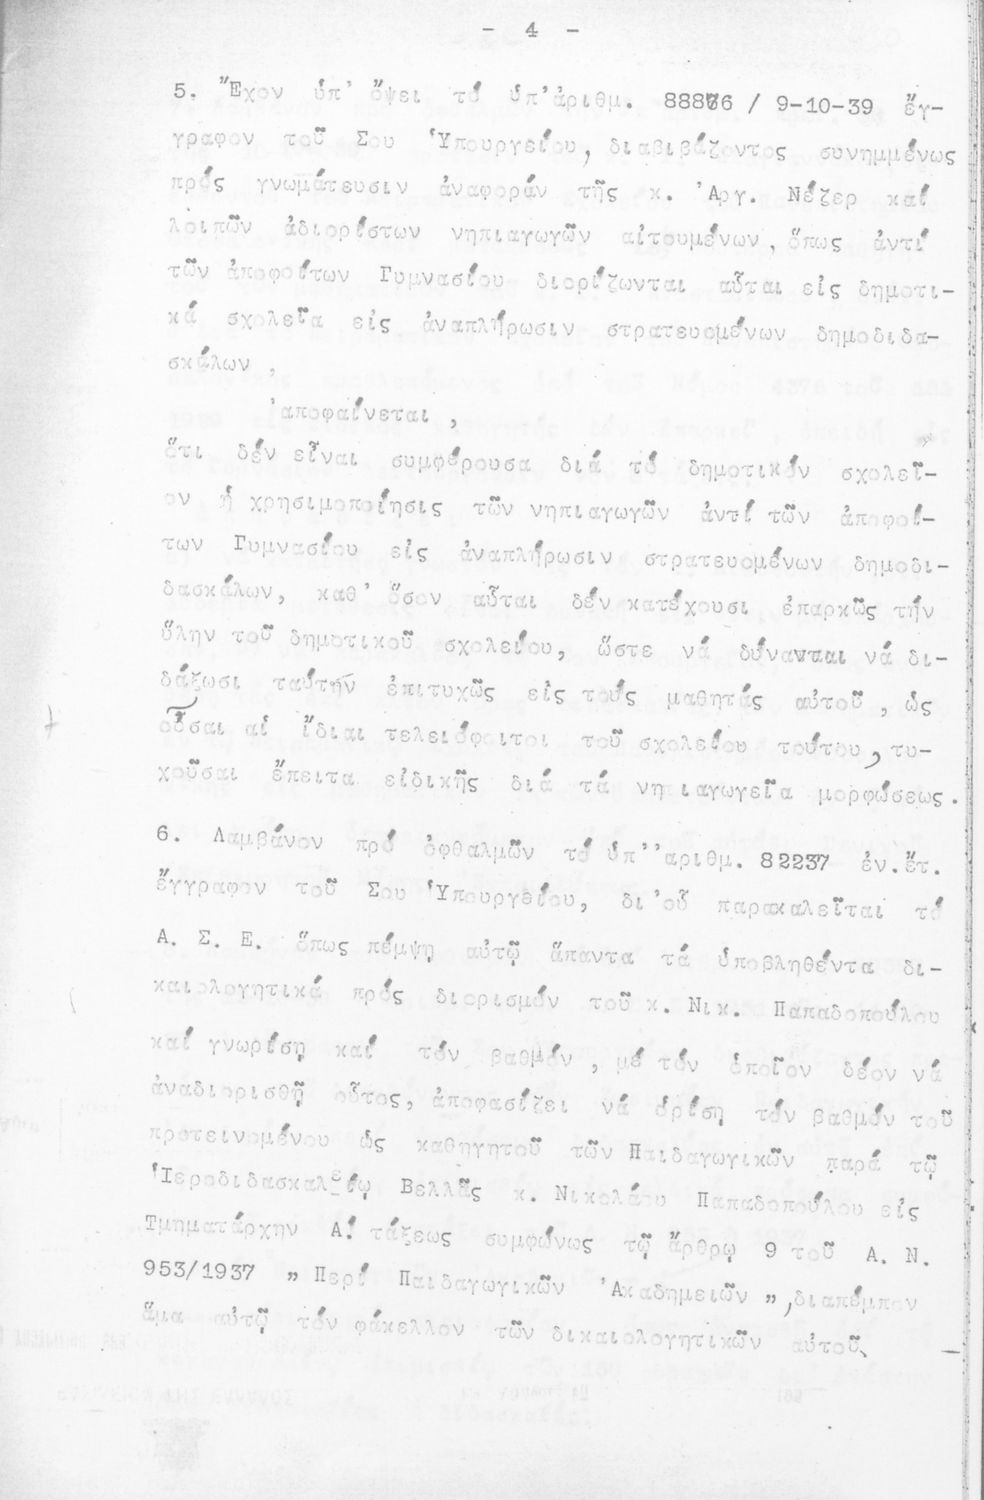 - 4 -
5. Ἔχον ὑπ' ὄψει τό ὑπ'ἀριθμ. 88876 / 9-10-39 ἔγ-
γραφον τοῦ Σου Ὑπουργείου, διαβιβάζοντος συνημμένως
πρός γνωμάτευσιν ἀναφοράν τῆς κ. Ἀργ. Νέζερ καί
λοιπῶν ἀδιορίστων νηπιαγωγῶν αἰτουμένων, ὅπως ἀντί
τῶν ἀποφοίτων Γυμνασίου διορίζωνται αὗται εἰς δημοτι-
κά σχολεῖα εἰς ἀναπλήρωσιν στρατευομένων δημοδιδα-
σκάλων,
'αποφαίνεται,
ὅτι δέν εἶναι συμφέρουσα διά τό δημοτικόν σχολεῖ-
ον ἡ χρησιμοποίησις τῶν νηπιαγωγῶν ἀντί τῶν ἀποφοί-
των Γυμνασίου εἰς ἀναπλήρωσιν στρατευομένων δημοδι-
δασκάλων, καθ' ὅσον αὗται δέν κατέχουσι ἐπαρκῶς τήν
ὕλην τοῦ δημοτικοῦ σχολείου, ὥστε νά δύνανται νά δι-
δάξωσι ταύτην ἐπιτυχῶς εἰς τούς μαθητάς αὐτοῦ, ὡς
οὖσαι αἱ ἴδιαι τελειόφοιτοι τοῦ σχολείου τούτου, τυ-
χοῦσαι ἔπειτα εἰδικῆς διά τά νηπιαγωγεῖα μορφώσεως.
6. Λαμβάνον πρό ὀφθαλμῶν τό ὑπ''αριθμ. 82237 ἐν.ἔτ.
ἔγγραφον τοῦ Σου Ὑπουργείου, δι'οὗ παρακαλεῖται τό
Α. Σ. Ε. ὅπως πέμψῃ αὐτῷ ἅπαντα τά ὑποβληθέντα δι-
καιολογητικά πρός διορισμόν τοῦ κ. Νικ. Παπαδοπούλου
καί γνωρίσῃ καί τόν βαθμόν, μέ τόν ὁποῖον δέον νά
ἀναδιορισθῇ οὗτος, ἀποφασίζει νά ὁρίσῃ τόν βαθμόν τοῦ
προτεινομένου ὡς καθηγητοῦ τῶν Παιδαγωγικῶν παρά τῷ
Ἱεροδιδασκαλείῳ Βελλᾶς κ. Νικολάου Παπαδοπούλου εἰς
Τμηματάρχην Α! τάξεως συμφώνως τῷ ἄρθρῳ 9 τοῦ Α. Ν.
953/1937 „ Περί Παιδαγωγικῶν Ἀκαδημειῶν „, διαπέμπον
ἅμα αὐτῷ τόν φάκελλον τῶν δικαιολογητικῶν αὐτοῦ.